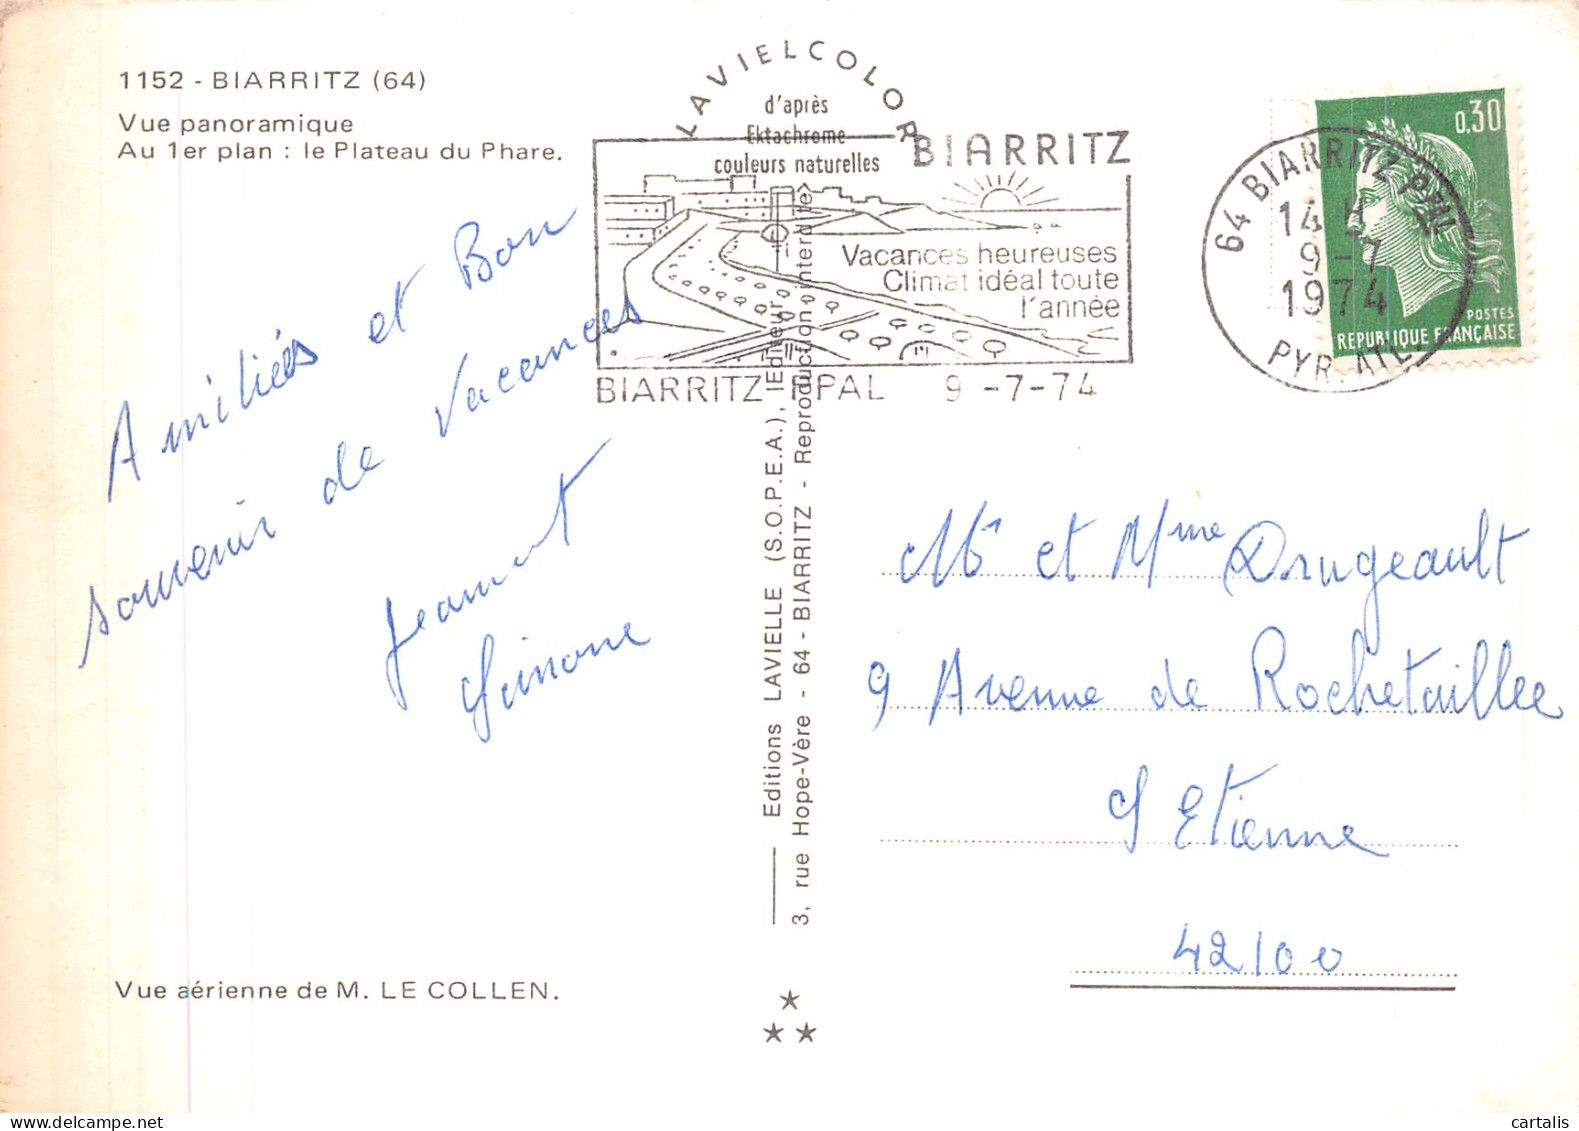 1152 - BIARRITZ (64)
Vue panoramique
Au 1er plan : le Plateau du Phare.
LAVIELCOLOR
d'après
Ektachrome
couleurs naturelles
BIARRITZ
Vacances heureuses
Climat idéal toute
l'année
BIARRITZ PPAL 9 -7-74
64 BIARRITZ PPAL
14 H
9-7
1974
PYR. ATL.
0,30
POSTES
REPUBLIQUE FRANÇAISE
Amitiés et Bon
souvenir de Vacances
Jean et
Simone
Editions LAVIELLE (S.O.P.E.A.), (Editeur)
3, rue Hope-Vère - 64 - BIARRITZ - Reproduction interdite
Mr et Mme Drugeault
9 Avenue de Rochetaillee
St Etienne
42100
Vue aérienne de M. LE COLLEN.
cartalis